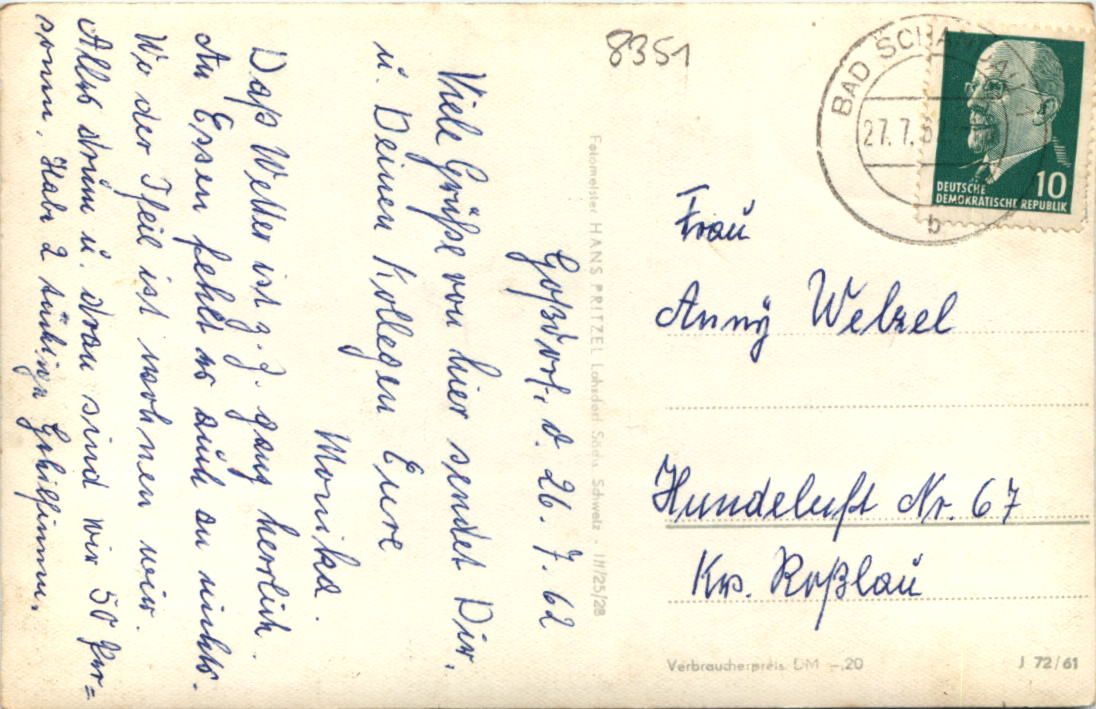 8351
Goßdorf, d. 26. 7. 62
Viele Grüße von hier sendet Dir.
u. Deinen Kollegen Eure
Monika.
Daß Wetter ist z. Z. ganz herrlich.
An Essen fehlt es auch an nichts.
Wo der Theil ist wohnen wir.
Alles drum u. dran sind wir 50 Per=
sonen. Habe 2 tüchtige Gehilfinnen.
Fotomeister HANS PRITZEL Lohsdorf Sächs. Schweiz - III/25/28
BAD SCHANDAU
27. 7. 6
b
DEUTSCHE
DEMOKRATISCHE REPUBLIK
10
Frau
Anny Welzel
Hundeluft Nr. 67
Krs. Roßlau
Verbraucherpreis DM -.20
J 72/61